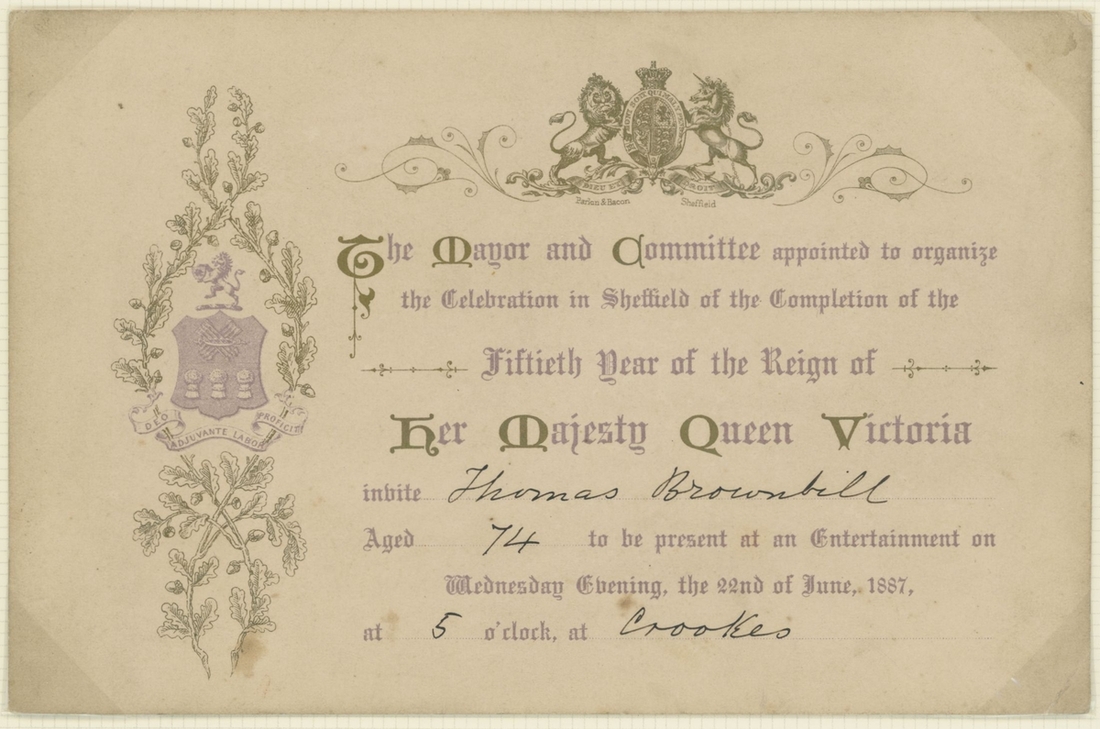 HONI SOIT QUI MAL Y PENSE
DIEU ET DROIT
Parkin & Bacon Sheffield
The Mayor and Committee appointed to organize
the Celebration in Sheffield of the Completion of the
Fiftieth Year of the Reign of
Her Majesty Queen Victoria
invite Thomas Brownbill
Aged 74 to be present at an Entertainment on
Wednesday Evening, the 22nd of June, 1887,
at 5 o'clock, at Crookes
DEO ADJUVANTE LABOR PROFICIT